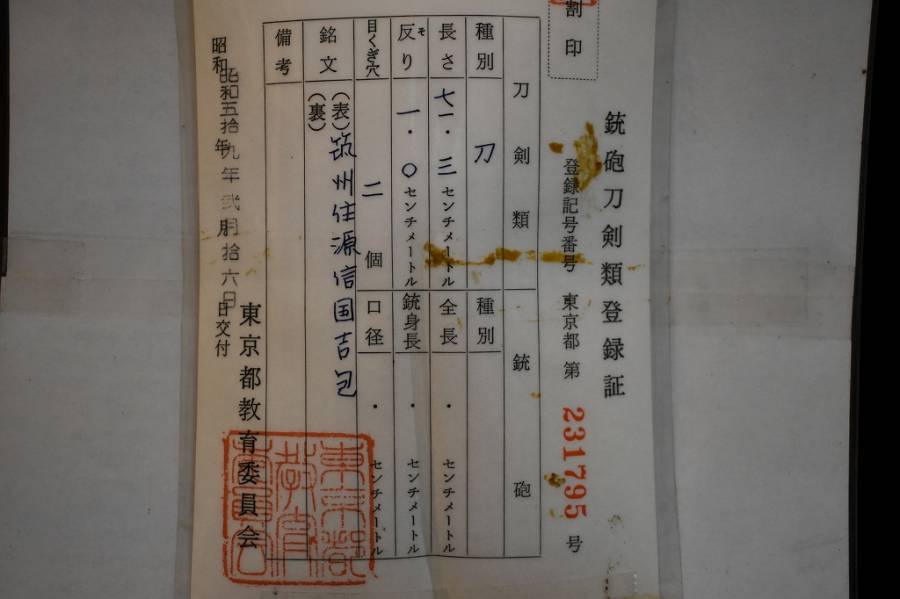 割印
銃砲刀剣類登録証
登録記号番号 東京都 第 231795 号
刀剣類 銃砲
種別 刀 種別
長さ 七一・三センチメートル 全長 ・ センチメートル
反り 一・〇センチメートル 銃身長 ・ センチメートル
そ
目くぎ穴 二個 口径 ・ センチメートル
銘文 (表)筑州住源信国吉包
(裏)
備考
東京都教育委員会
昭和 年 月 日交付
昭和五拾九年弐月拾六日
東京都教育委員会